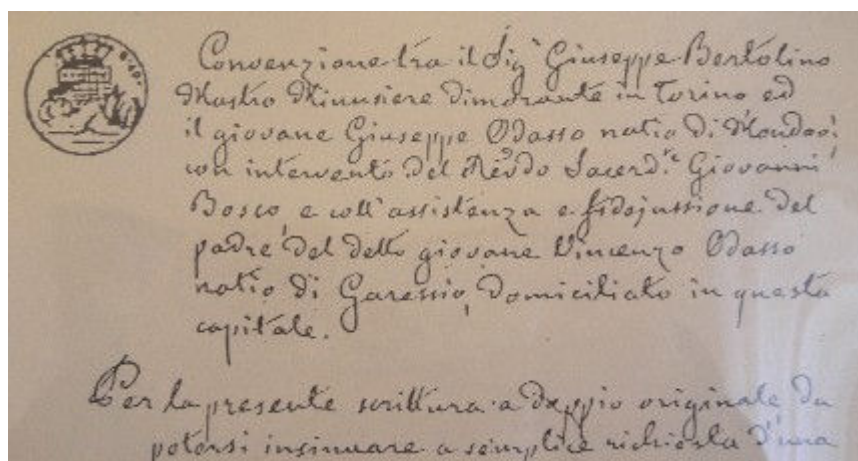 Convenzione tra il Sig.r Giuseppe Bertolino
Mastro Minusiere dimorante in Torino ed
il giovane Giuseppe Odasso natio di Mondovì,
con intervento del Rev.do Sacerd.te Giovanni
Bosco, e coll'assistenza e fidejussione del
padre del detto giovane Vincenzo Odasso
natio di Garessio, domiciliato in questa
capitale.
Per la presente scrittura a doppio originale da
potersi insinuare a semplice richiesta d'una